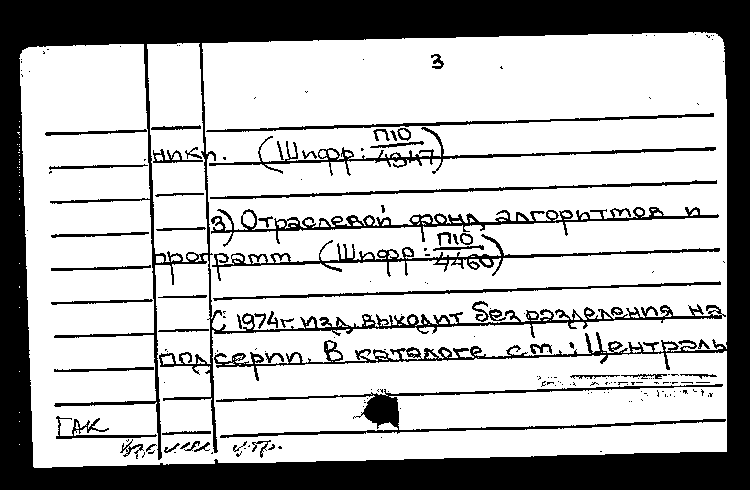 3
ники. (Шифр: П10/4347)
3) Отраслевой фонд алгоритмов и
программ (Шифр: П10/4460)
С 1974г. изд. выходит без разделения на
подсерии. В каталоге см.: Централь
ГАК
взамен утр.